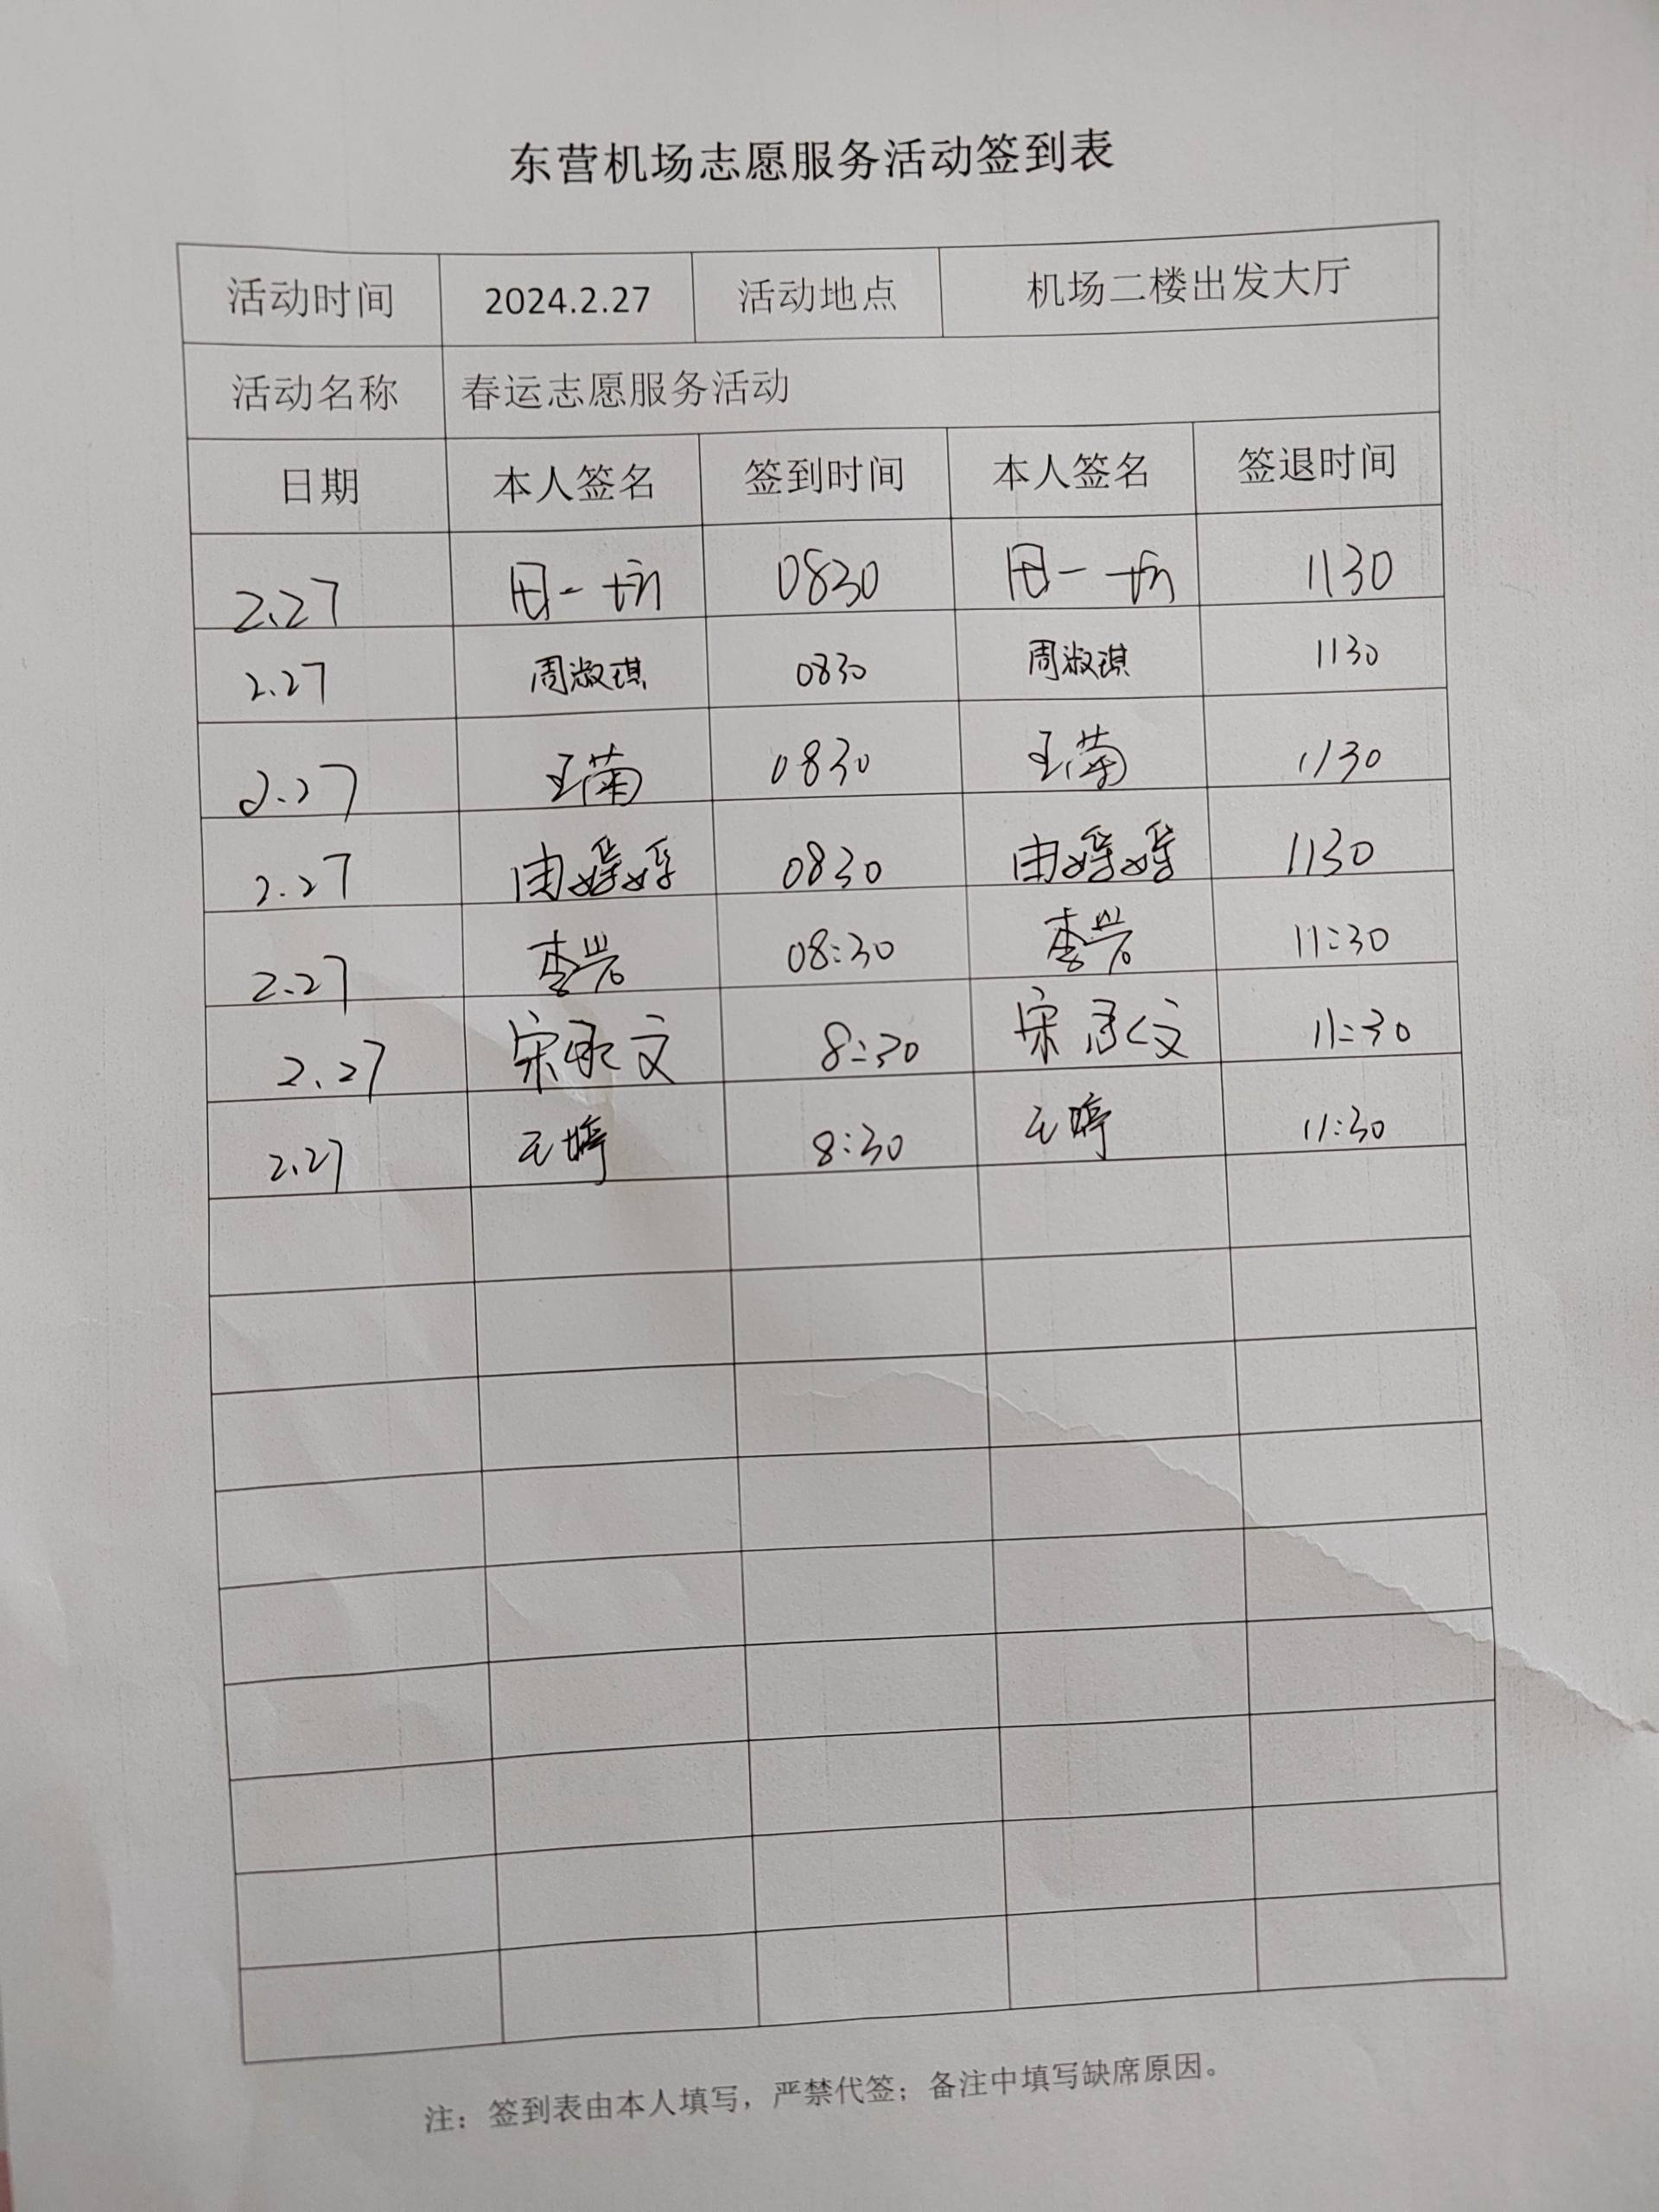 东营机场志愿服务活动签到表
活动时间 2024.2.27 活动地点 机场二楼出发大厅
活动名称 春运志愿服务活动
日期 本人签名 签到时间 本人签名 签退时间
2.27 0830 1130
2.27 周淑琪 0830 周淑琪 1130
2.27 王楠 0830 王楠 1130
2.27 由婷婷 0830 由婷婷 1130
2.27 李岩 08:30 李岩 11:30
2.27 宋承文 8:30 宋承文 11:30
2.27 王婷 8:30 王婷 11:30
注：签到表由本人填写，严禁代签；备注中填写缺席原因。